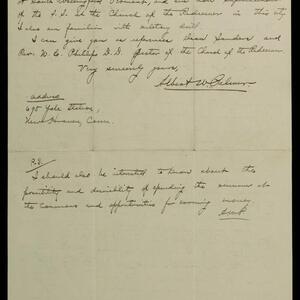 of the S.S. at the Church of the Redeemer in this city.
I also am familiar with military drill.
I can give you as reference Dean Sanders and
Rev. W. C. Phillips D.D. Pastor of the Church of the Redeemer.
Very sincerely yours,
Albert W.
Address
695 Yale Station,
New Haven, Conn.
P.S.
I should also be interested to know about the
possibility and desirability of spending the summer at
the and opportunities for earning money.